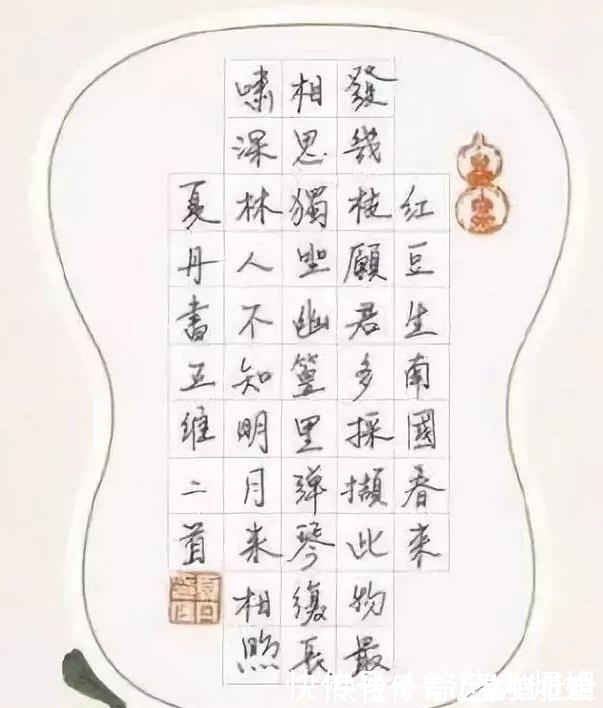 红豆生南國春来
發幾枝願君多採擷此物最
相思獨坐幽篁里弹琴復長
嘯深林人不知明月来相照
夏丹書王維二首